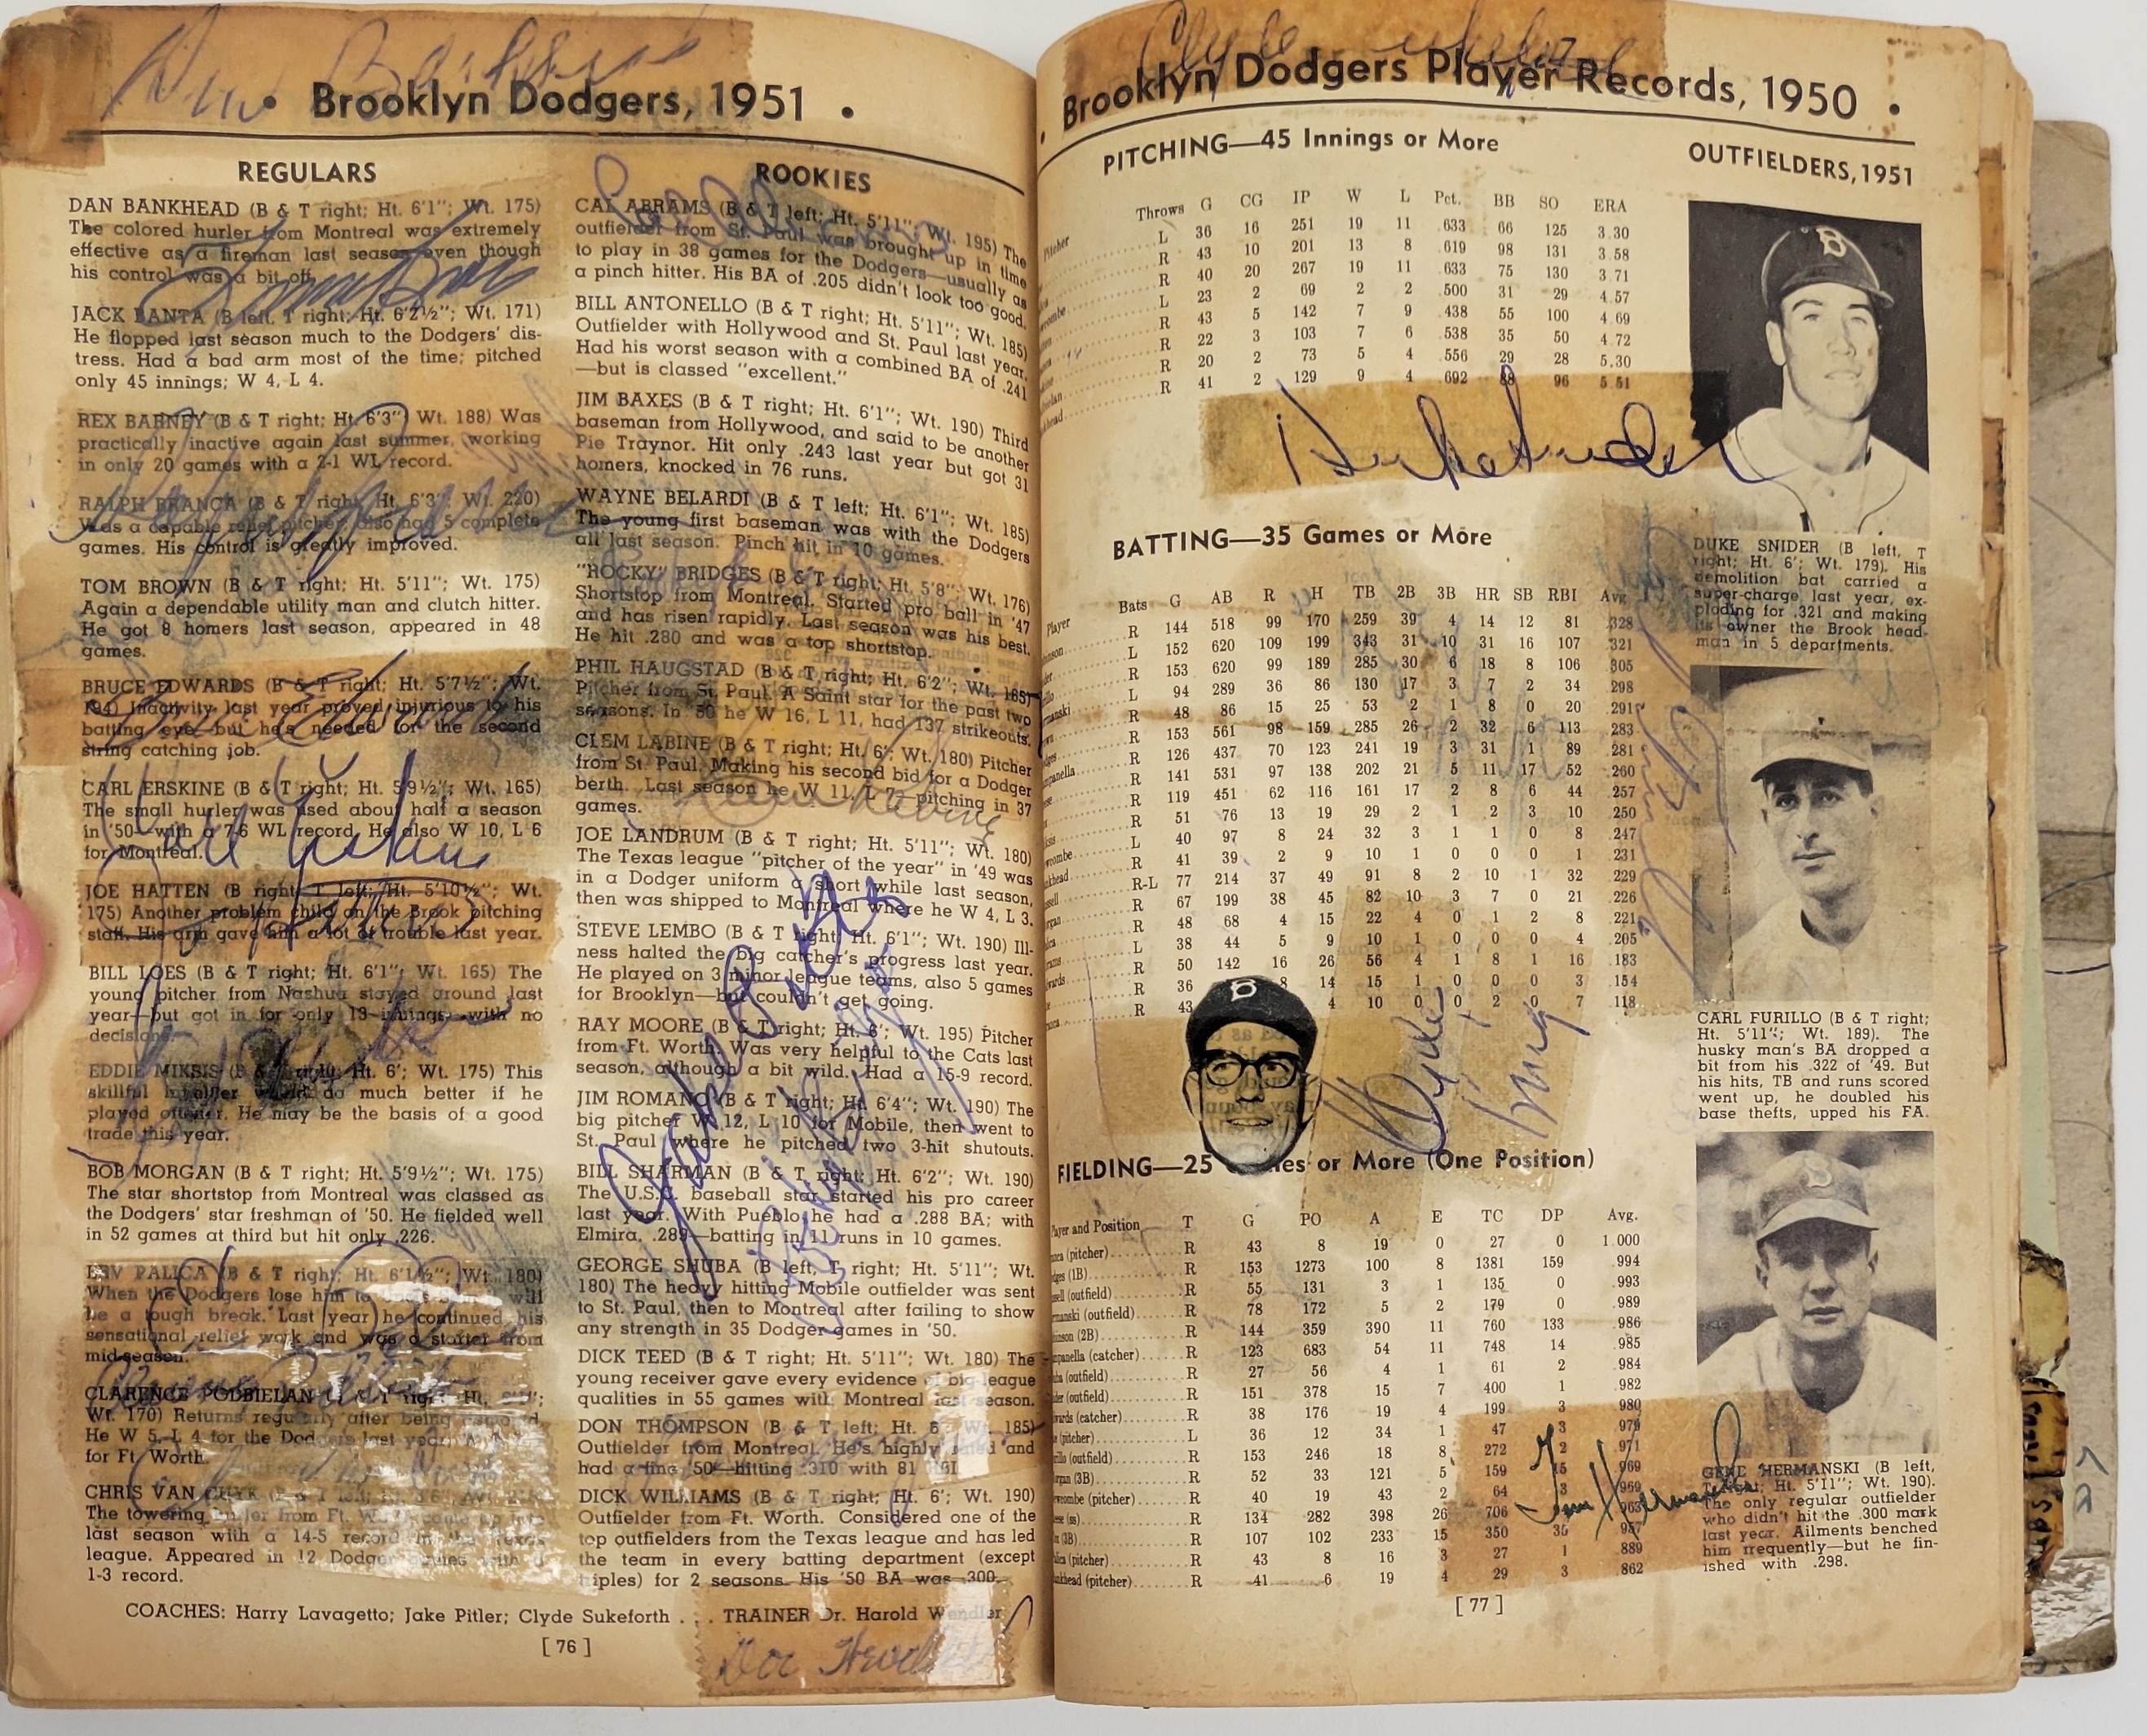 Brooklyn Dodgers, 1951 •
REGULARS
DAN BANKHEAD (B & T right; Ht. 6'1"; Wt. 175)
The colored hurler from Montreal was extremely
effective as a fireman last season even though
his control was a bit off.
JACK BANTA (B left, T right; Ht. 6'2½"; Wt. 171)
He flopped last season much to the Dodgers' dis-
tress. Had a bad arm most of the time; pitched
only 45 innings; W 4, L 4.
REX BARNEY (B & T right; Ht. 6'3"; Wt. 188) Was
practically inactive again last summer, working
in only 20 games with a 2-1 WL record.
RALPH BRANCA (B & T right; Ht. 6'3"; Wt. 220)
Was a capable relief pitcher, also had 5 complete
games. His control is greatly improved.
TOM BROWN (B & T right; Ht. 5'11"; Wt. 175)
Again a dependable utility man and clutch hitter.
He got 8 homers last season, appeared in 48
games.
BRUCE EDWARDS (B & T right; Ht. 5'7½"; Wt.
194) Inactivity last year proved injurious to his
batting eye—but he's needed for the second
string catching job.
CARL ERSKINE (B & T right; Ht. 5'9½"; Wt. 165)
The small hurler was used about half a season
in '50—with a 7-6 WL record. He also W 10, L 6
for Montreal.
JOE HATTEN (B right; T left; Ht. 5'10½"; Wt.
175) Another problem child on the Brook pitching
staff. His arm gave him a lot of trouble last year.
BILL LOES (B & T right; Ht. 6'1"; Wt. 165) The
young pitcher from Nashua stayed around last
year—but got in for only 13 innings—with no
decisions.
EDDIE MIKSIS (B & T right; Ht. 6'; Wt. 175) This
skillful infielder would do much better if he
played oftener. He may be the basis of a good
trade this year.
BOB MORGAN (B & T right; Ht. 5'9½"; Wt. 175)
The star shortstop from Montreal was classed as
the Dodgers' star freshman of '50. He fielded well
in 52 games at third but hit only .226.
ERV PALICA (B & T right; Ht. 6'1½"; Wt. 180)
When the Dodgers lose him to will
be a tough break. Last year he continued his
sensational relief work and was a starter from
mid-season.
CLARENCE PODBIELAN (B & T right; Ht.
Wt. 170) Returns regularly after being
He W 5, L 4 for the Dodgers last year.
for Ft. Worth.
CHRIS VAN CUYK
The towering hurler from Ft.
last season with a 14-5 record in the Texas
league. Appeared in 12 Dodger games with a
1-3 record.
ROOKIES
CAL ABRAMS (B & T left; Ht. 5'11"; Wt. 195) The
outfielder from St. Paul was brought up in time
to play in 38 games for the Dodgers—usually as
a pinch hitter. His BA of .205 didn't look too good.
BILL ANTONELLO (B & T right; Ht. 5'11"; Wt. 185)
Outfielder with Hollywood and St. Paul last year.
Had his worst season with a combined BA of .241
—but is classed "excellent."
JIM BAXES (B & T right; Ht. 6'1"; Wt. 190) Third
baseman from Hollywood, and said to be another
Pie Traynor. Hit only .243 last year but got 31
homers, knocked in 76 runs.
WAYNE BELARDI (B & T left; Ht. 6'1"; Wt. 185)
The young first baseman was with the Dodgers
all last season. Pinch hit in 10 games.
"ROCKY" BRIDGES (B & T right; Ht. 5'8"; Wt. 176)
Shortstop from Montreal. Started pro ball in '47
and has risen rapidly. Last season was his best.
He hit .280 and was a top shortstop.
PHIL HAUGSTAD (B & T right; Ht. 6'2"; Wt. 165)
Pitcher from St. Paul. A Saint star for the past two
seasons. In '50 he W 16, L 11, had 137 strikeouts.
CLEM LABINE (B & T right; Ht. 6'; Wt. 180) Pitcher
from St. Paul. Making his second bid for a Dodger
berth. Last season he W 11, L 7—pitching in 37
games.
JOE LANDRUM (B & T right; Ht. 5'11"; Wt. 180)
The Texas league "pitcher of the year" in '49 was
in a Dodger uniform a short while last season,
then was shipped to Montreal where he W 4, L 3.
STEVE LEMBO (B & T right; Ht. 6'1"; Wt. 190) Ill-
ness halted the big catcher's progress last year.
He played on 3 minor league teams, also 5 games
for Brooklyn—but couldn't get going.
RAY MOORE (B & T right; Ht. 6'; Wt. 195) Pitcher
from Ft. Worth. Was very helpful to the Cats last
season, although a bit wild. Had a 15-9 record.
JIM ROMANO (B & T right; Ht. 6'4"; Wt. 190) The
big pitcher W 12, L 10 for Mobile, then went to
St. Paul where he pitched two 3-hit shutouts.
BILL SHARMAN (B & T right; Ht. 6'2"; Wt. 190)
The U.S.C. baseball star started his pro career
last year. With Pueblo he had a .288 BA; with
Elmira, .289—batting in 11 runs in 10 games.
GEORGE SHUBA (B left, T right; Ht. 5'11"; Wt.
180) The heavy hitting Mobile outfielder was sent
to St. Paul, then to Montreal after failing to show
any strength in 35 Dodger games in '50.
DICK TEED (B & T right; Ht. 5'11"; Wt. 180) The
young receiver gave every evidence of big-league
qualities in 55 games with Montreal last season.
DON THOMPSON (B & T left; Ht. 6'; Wt. 185)
Outfielder from Montreal. He's highly rated and
had a fine '50—hitting .310 with 81 RBI.
DICK WILLIAMS (B & T right; Ht. 6'; Wt. 190)
Outfielder from Ft. Worth. Considered one of the
top outfielders from the Texas league and has led
the team in every batting department (except
triples) for 2 seasons. His '50 BA was .300.
COACHES: Harry Lavagetto; Jake Pitler; Clyde Sukeforth . . . TRAINER Dr. Harold Wendler
[ 76 ]
Brooklyn Dodgers Player Records, 1950 •
PITCHING—45 Innings or More
Pitcher Throws G CG IP W L Pct. BB SO ERA
L 36 16 251 19 11 .633 66 125 3.30
R 43 10 201 13 8 .619 98 131 3.58
R 40 20 267 19 11 .633 75 130 3.71
L 23 2 69 2 2 .500 31 29 4.57
R 43 5 142 7 9 .438 55 100 4.69
R 22 3 103 7 6 .538 35 50 4.72
R 20 2 73 5 4 .556 29 28 5.30
R 41 2 129 9 4 .692 88 96 5.51
Duke Snider
BATTING—35 Games or More
Player Bats G AB R H TB 2B 3B HR SB RBI Avg.
R 144 518 99 170 259 39 4 14 12 81 .328
L 152 620 109 199 343 31 10 31 16 107 .321
R 153 620 99 189 285 30 6 18 8 106 .305
L 94 289 36 86 130 17 3 7 2 34 .298
R 48 86 15 25 53 2 1 8 0 20 .291
R 153 561 98 159 285 26 2 32 6 113 .283
R 126 437 70 123 241 19 3 31 1 89 .281
R 141 531 97 138 202 21 5 11 17 52 .260
R 119 451 62 116 161 17 2 8 6 44 .257
R 51 76 13 19 29 2 1 2 3 10 .250
L 40 97 8 24 32 3 1 1 0 8 .247
R 41 39 2 9 10 1 0 0 0 1 .231
R-L 77 214 37 49 91 8 2 10 1 32 .229
R 67 199 38 45 82 10 3 7 0 21 .226
R 48 68 4 15 22 4 0 1 2 8 .221
L 38 44 5 9 10 1 0 0 0 4 .205
R 50 142 16 26 56 4 1 8 1 16 .183
R 36 8 14 15 1 0 0 0 3 .154
R 43 4 10 0 0 2 0 7 .118
Clyde King
FIELDING—25 Games or More (One Position)
Player and Position T G PO A E TC DP Avg.
(pitcher) R 43 8 19 0 27 0 1.000
(1B) R 153 1273 100 8 1381 159 .994
(outfield) R 55 131 3 1 135 0 .993
(outfield) R 78 172 5 2 179 0 .989
(2B) R 144 359 390 11 760 133 .986
(catcher) R 123 683 54 11 748 14 .985
(outfield) R 27 56 4 1 61 2 .984
(outfield) R 151 378 15 7 400 1 .982
(catcher) R 38 176 19 4 199 3 .980
(pitcher) L 36 12 34 1 47 3 .979
(outfield) R 153 246 18 8 272 2 .971
(3B) R 52 33 121 5 159 15 .969
(pitcher) R 40 19 43 2 64 3 .969
(ss) R 134 282 398 26 706 .963
(3B) R 107 102 233 15 350 35 .957
(pitcher) R 43 8 16 3 27 1 .889
(pitcher) R 41 6 19 4 29 3 .862
[ 77 ]
OUTFIELDERS, 1951
DUKE SNIDER (B left, T
right; Ht. 6'; Wt. 179). His
demolition bat carried a
super-charge last year, ex-
ploding for .321 and making
its owner the Brook head-
man in 5 departments.
CARL FURILLO (B & T right;
Ht. 5'11"; Wt. 189). The
husky man's BA dropped a
bit from his .322 of '49. But
his hits, TB and runs scored
went up, he doubled his
base thefts, upped his FA.
Gene Hermanski
GENE HERMANSKI (B left,
T right; Ht. 5'11"; Wt. 190).
The only regular outfielder
who didn't hit the .300 mark
last year. Ailments benched
him frequently—but he fin-
ished with .298.